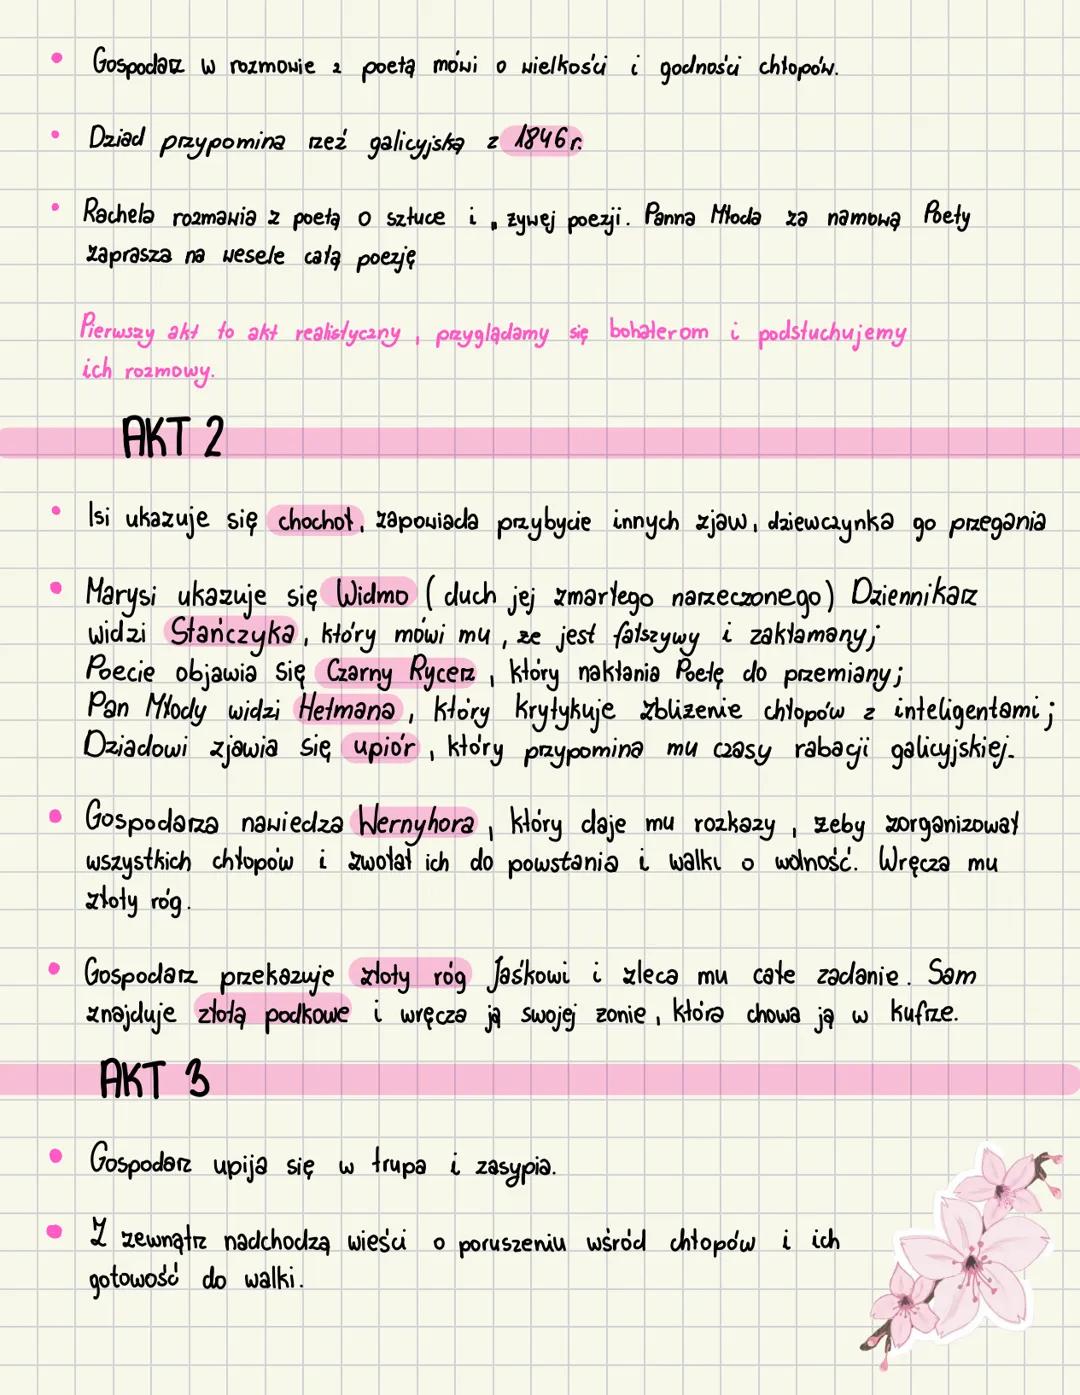 Gospodarz w rozmowie z poetą mówi o wielkości i godności chłopów.
Dziad przypomina rzeź galicyjską z 1846r.
Rachela rozmawia z poetą o sztuce i „żywej poezji. Panna Młoda za namową Poety
zaprasza na wesele całą poezję
Pierwszy akt to akt realistyczny, przyglądamy się bohaterom i podsłuchujemy
ich rozmowy.
AKT 2
Isi ukazuje się chochoł, zapowiada przybycie innych zjaw, dziewczynka go przegania
Marysi ukazuje się Widmo (duch jej zmarłego narzeczonego) Dziennikarz
widzi Stańczyka, który mówi mu, że jest fałszywy i zakłamany;
Poecie objawia się Czarny Rycerz, który nakłania Poetę do przemiany;
Pan Młody widzi Hetmana, który krytykuje zbliżenie chłopów z inteligentami;
Dziadowi zjawia się upiór, który przypomina mu czasy rabacji galicyjskiej.
Gospodarza nawiedza Wernyhora, który daje mu rozkazy, żeby zorganizował
wszystkich chłopów i zwołał ich do powstania i walki o wolność. Wręcza mu
złoty róg.
Gospodarz przekazuje złoty róg Jaśkowi i zleca mu całe zadanie. Sam
znajduje złotą podkowe i wręcza ją swojej żonie, która chowa ją w kufrze.
AKT 3
Gospodarz upija się w trupa i zasypia.
Z zewnątrz nadchodzą wieści o poruszeniu wśród chłopów i ich
gotowość do walki.